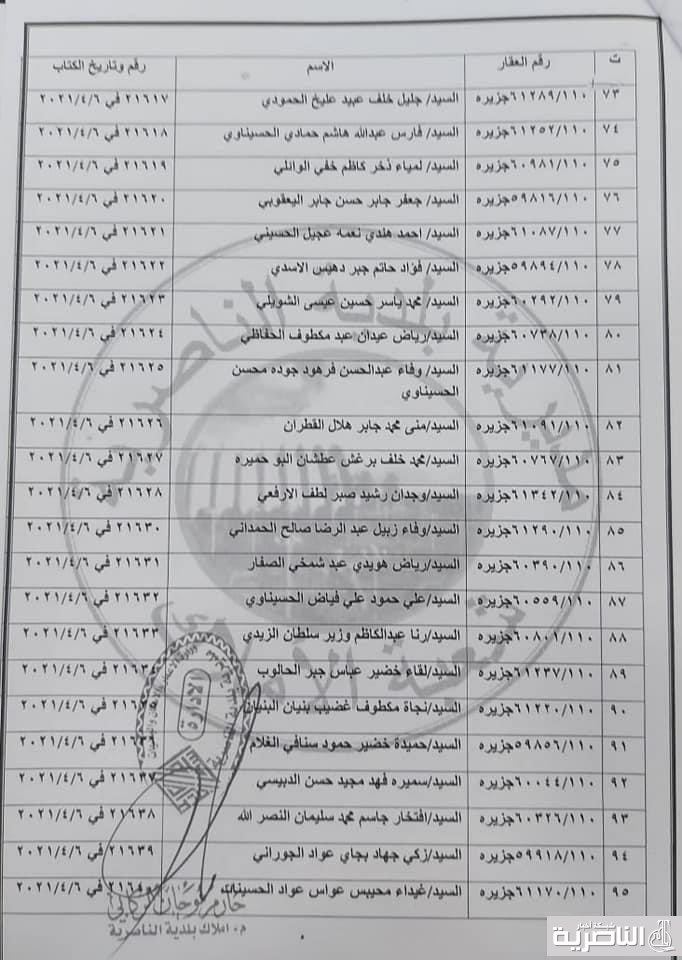 ت رقم العقار الاسم رقم وتاريخ الكتاب
٧٣ ٦١٢٨٩/١١٠جزيره السيد/ جليل خلف عبيد عليخ الحمودي ٢١٦١٧ في ٢٠٢١/٤/٦
٧٤ ٦١٢٥٢/١١٠جزيره السيد/ فارس عبدالله هاشم حمادي الحسيناوي ٢١٦١٨ في ٢٠٢١/٤/٦
٧٥ ٦٠٩٨١/١١٠جزيره السيد/ لمياء ذخر كاظم خفي الوائلي ٢١٦١٩ في ٢٠٢١/٤/٦
٧٦ ٥٩٨١٦/١١٠جزيره السيد/ جعفر جابر حسن جابر اليعقوبي ٢١٦٢٠ في ٢٠٢١/٤/٦
٧٧ ٦١٠٨٧/١١٠جزيره السيد/ احمد هندي نعمه عجيل الحسيني ٢١٦٢١ في ٢٠٢١/٤/٦
٧٨ ٥٩٨٩٤/١١٠جزيره السيد/ فؤاد حاتم جبر دهيس الاسدي ٢١٦٢٢ في ٢٠٢١/٤/٦
٧٩ ٦٠٢٩٢/١١٠جزيره السيد/ محمد ياسر حسين عيسى الشويلي ٢١٦٢٣ في ٢٠٢١/٤/٦
٨٠ ٦٠٧٣٨/١١٠جزيره السيد/رياض عيدان عبد مكطوف الحفاظي ٢١٦٢٤ في ٢٠٢١/٤/٦
٨١ ٦١١٧٧/١١٠جزيره السيد/ وفاء عبدالحسن فرهود جوده محسن ٢١٦٢٥ في ٢٠٢١/٤/٦
الحسيناوي
٨٢ ٦١٠٩١/١١٠جزيره السيد/منى محمد جابر هلال القطران ٢١٦٢٦ في ٢٠٢١/٤/٦
٨٣ ٦٠٧٦٧/١١٠جزيره السيد/محمد خلف برغش عطشان البو حميره ٢١٦٢٧ في ٢٠٢١/٤/٦
٨٤ ٦١٣٤٢/١١٠جزيره السيد/وجدان رشيد صبر لطف الارفعي ٢١٦٢٨ في ٢٠٢١/٤/٦
٨٥ ٦١٢٩٠/١١٠جزيره السيد/وفاء زبيل عبد الرضا صالح الحمداني ٢١٦٣٠ في ٢٠٢١/٤/٦
٨٦ ٦٠٣٩٠/١١٠جزيره السيد/رياض هويدي عبد شمخي الصفار ٢١٦٣١ في ٢٠٢١/٤/٦
٨٧ ٦٠٥٥٩/١١٠جزيره السيد/علي حمود علي فياض الحسيناوي ٢١٦٣٢ في ٢٠٢١/٤/٦
٨٨ ٦٠٨٠١/١١٠جزيره السيد/رنا عبدالكاظم وزير سلطان الزيدي ٢١٦٣٣ في ٢٠٢١/٤/٦
٨٩ ٦١٢٣٧/١١٠جزيره السيد/لقاء خضير عباس جبر الحالوب في ٢٠٢١/٤/٦
٩٠ ٦١٢٢٠/١١٠جزيره السيد/نجاة مكطوف غضيب بنيان البنيان في ٢٠٢١/٤/٦
٩١ ٥٩٨٥٦/١١٠جزيره السيد/حميدة خضير حمود سنافي الغلام في ٢٠٢١/٤/٦
٩٢ ٦٠٠٤٤/١١٠جزيره السيد/سميره فهد مجيد حسن الدبيسي ٢١٦٣٧ في ٢٠٢١/٤/٦
٩٣ ٦٠٣٢٦/١١٠جزيره السيد/افتخار جاسم محمد سليمان النصر الله ٢١٦٣٨ في ٢٠٢١/٤/٦
٩٤ ٥٩٩١٨/١١٠جزيره السيد/زكي جهاد بجاي عواد الجوراني ٢١٦٣٩ في ٢٠٢١/٤/٦
٩٥ ٦١١٧٠/١١٠جزيره السيد/غيداء محيبس عواس عواد الحسينات في ٢٠٢١/٤/٦
مديرية بلدية الناصرية
شعبة الأملاك
الإدارة
م. املاك بلدية الناصرية
شبكة اخبار
الناصرية